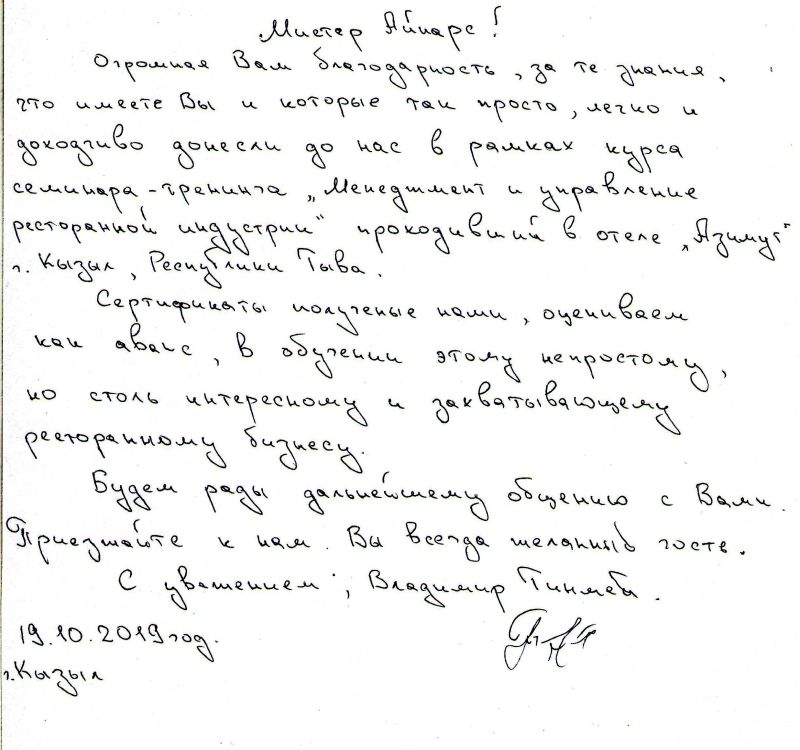 Мистер Айнарс!
Огромная Вам благодарность, за те знания,
что имеете Вы и которые так просто, легко и
доходчиво донесли до нас в рамках курса
семинара-тренинга „Менеджмент и управление
ресторанной индустрии“ проходивший в отеле „Азимут“
г. Кызыл, Республики Тыва.
Сертификаты полученые нами, оцениваем
как аванс, в обучении этому непростому,
но столь интересному и захватывающему
ресторанному бизнесу.
Будем рады дальнейшему общению с Вами.
Приезжайте к нам. Вы всегда желанный гость.
С уважением, Владимир
19.10.2019 год.
г. Кызыл